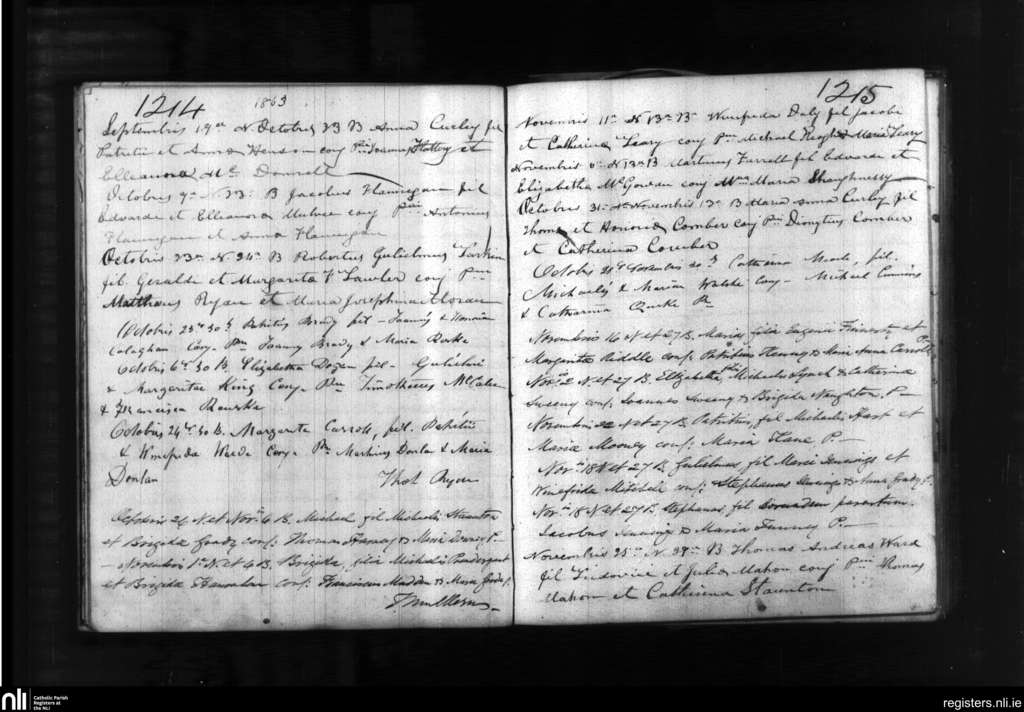 1214
1863
Septembris 19a N Octobris 23 B Anna Curley fil
Patritii et Anna Henson conj Pni Joannes Hattey et
Elleanora Mc Donnell
Octobris 9a N 23 B Jacobus Flannigan fil
Edvardi et Elleanora Mulvee conj Pni Antonius
Flannigan et Anna Flannigan
Octobris 23a N 24a B Robertus Gulielmus Larkin
fil. Geraldi et Margarita F Lawler conj Pni
Matthaus Ryan et Maria Josephina Horan
Octobris 23 30 B Patritius Brady fil - Joannis & Honoria
Calaghan Conj. Pni Joannes Brady & Maria Rorke
Octobris 6 30 B. Elizabetha Dozen fil - Gulielmi
& Margaritae King Conj. Pni Timotheus McCabe
& Francisca Rourke
Octobris 24 30 B. Margarita Carroll, fil. Patritii
& Winefreda Warde Conj. Pni Martinus Donlan & Maria
Donlan Thos Ryan
Octobris 26 N. et Nov 4 B. Michael fil Michaelis Staunton
et Brigida Grady conj. Thomas Feeney & Maria Feeney P
Novembris 1 N. et 4 B. Brigida, filia Michaelis Prendergast
et Brigida Hanrahan conj. Franciscus Madden & Maria Grady P.
1215
Novembris 11a N 13a B Winefreda Daly fil Jacobi
et Catherina Leary conj Pni Michael Keogh & Maria Leary
Novembris N 13a B Martinus Farrell fil Edvardi et
Elizabetha McGowan conj Maria Shaughnessy
Octobris 31 N Novembris 13a B Maria Anna Curley fil
Thoma et Honora Comber conj Pni Dionysius Comber
et Catherina Comber
Octobris Catherina Meade, fil.
Michaelis & Maria Walshe Conj - Michael Cummins
& Catharina Burke Pni
Novembris 16 N et 27 B. Maria filia Eugenii et
Margarita Riddle conj. Patritius Heaney & Maria Anna Carroll
Nov 2 N et 27 B. Elizabetha, fil Michaelis Lynch & Catherina
Sweeny conj. Joannes Sweeny & Brigida Naughton, P
Novembris 22 N et 27 B Patritius, fil Michaelis Hart et
Maria Mooney conj. Maria Kane P
Nov 18 N et 27 B. Gulielmus, fil Maria Jennings et
Winefrida Mitchell conj. Stephanus & Anna Grady P.
Nov 18 N et 27 B. Stephanus, fil eorumdem parentum.
Jacobus & Maria P
Novembris 25 N. 29 B Thomas Andreas Ward
fil Ludovici et Julia Mahon conj Pni Thomas
Mahon et Catherina Staunton
nli Catholic Parish
Registers at
the NLI
registers.nli.ie